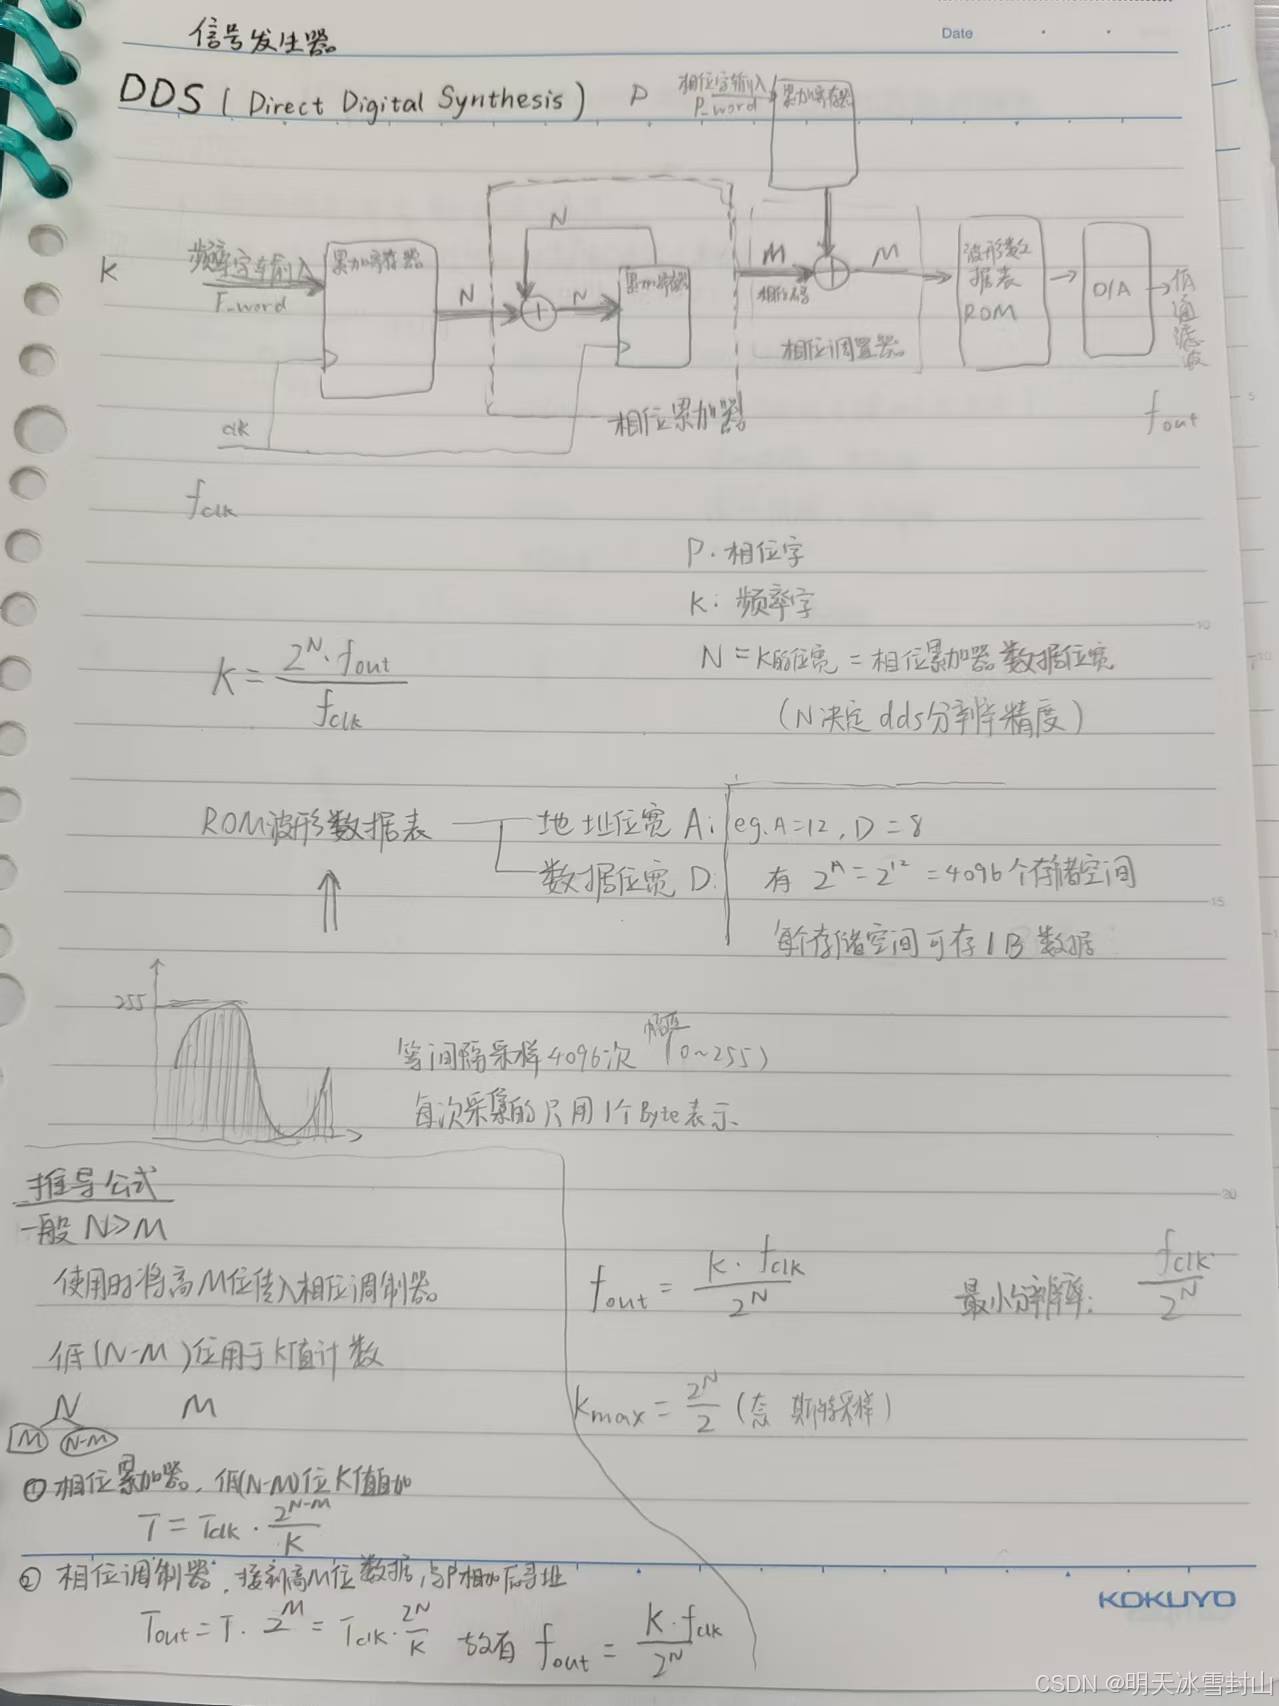 信号发生器
Date
DDS (Direct Digital Synthesis)
P
相位字输入
P_word
累加寄存器
K
频率字输入
F_word
累加寄存器
N
N
N
累加寄存器
M
相位码
M
波形数据表
ROM
D/A
低通滤波
相位调置器
相位累加器
clk
fclk
fout
P. 相位字
K: 频率字
K = 2^N·fout / fclk
N = K的位宽 = 相位累加器数据位宽
(N决定dds分辨率精度)
ROM波形数据表
地址位宽 A:
eg. A=12, D=8
数据位宽 D:
有 2^A = 2^12 = 4096个存储空间
每个存储空间可存 1B 数据
255
等间隔采样4096次 幅度(0~255)
每次采集的只用1个Byte表示
推导公式
一般 N>M
使用时将高M位传入相位调制器
低(N-M)位用于K值计数
N M
M N-M
① 相位累加器, 低(N-M)位K值自加
T = Tclk · 2^(N-M) / K
② 相位调制器, 接到高M位数据, 与P相加后寻址
Tout = T · 2^M = Tclk · 2^N / K 故有 fout = K·fclk / 2^N
fout = K·fclk / 2^N
最小分辨率: fclk / 2^N
Kmax = 2^N / 2 (奈斯特采样)
KOKUYO
CSDN @明天冰雪封山